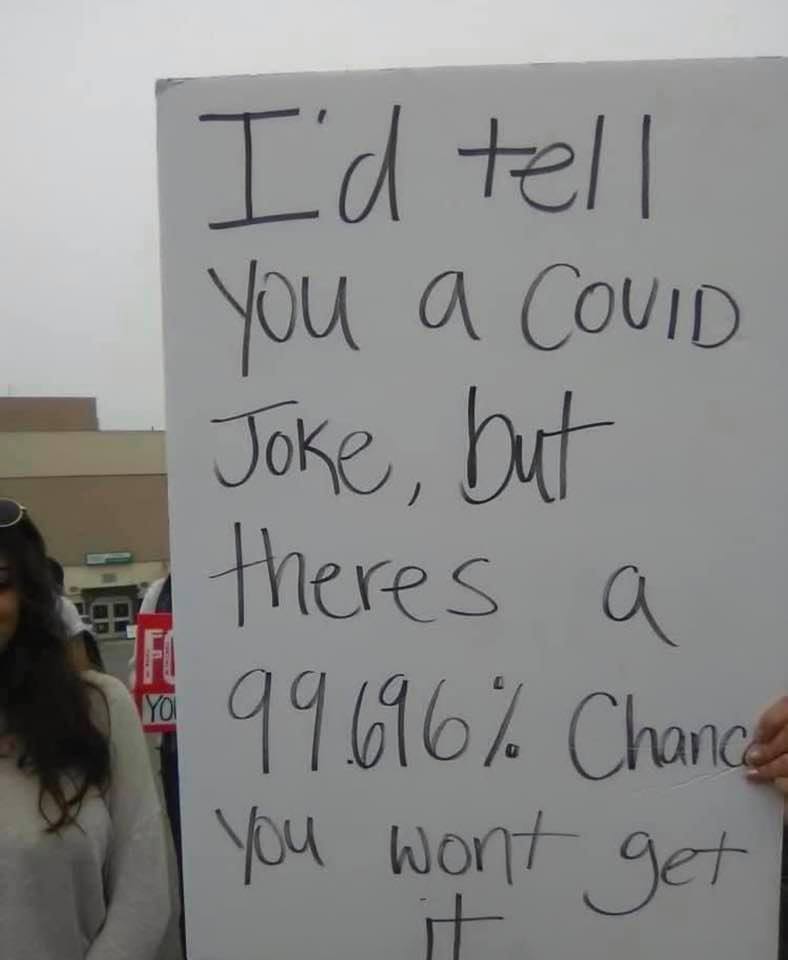 I'd tell
you a COVID
Joke, but
theres a
99.696% Chanc
you wont get
it
YO